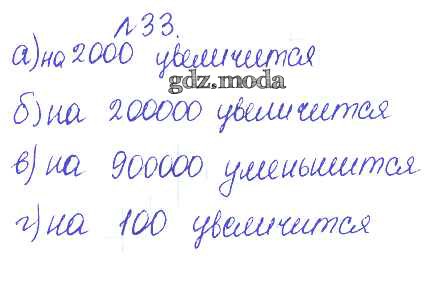 №33.
а) на 2000 увеличится
gdz.moda
б) на 200000 увеличится
в) на 900000 уменьшится
г) на 100 увеличится